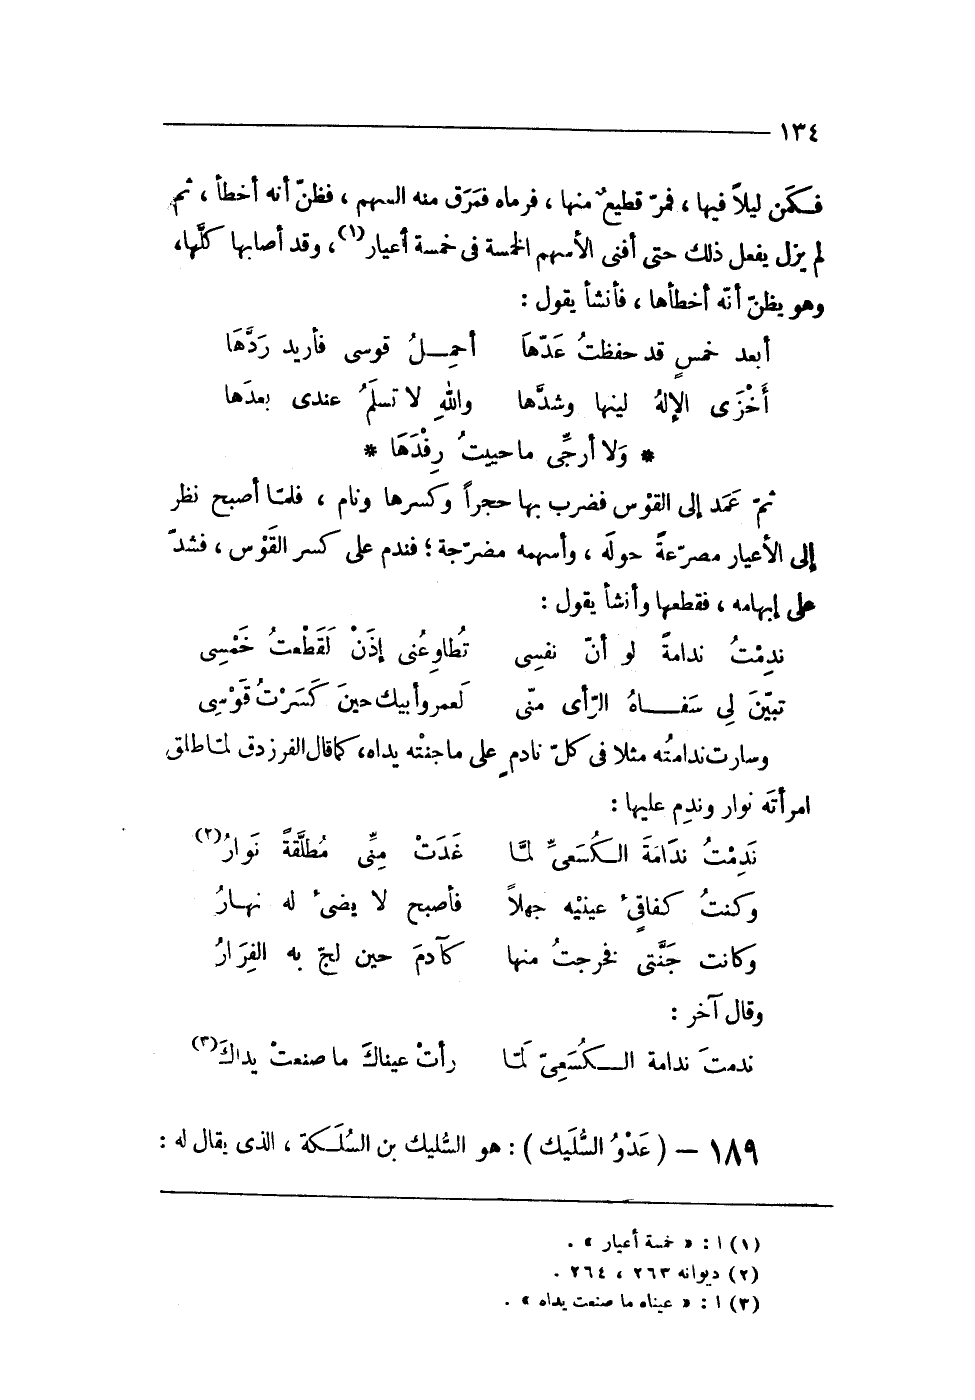 ١٣٤
فكَمَن ليلاً فيها ، فمرّ قطيعٌ منها ، فرماه فمَرَق منه السهم ، فظنّ أنه أخطأ ، ثم
لم يزل يفعل ذلك حتى أفنى الأسهم الخمسة فى خمسة أعيار(١) ، وقد أصابها كلَّها،
وهو يظنّ أنّه أخطأها ، فأنشأ يقول :
أبعد خمسٍ قد حفظتُ عَدّهَا أحمِـلُ قوسى فأريد رَدَّهَا
أَخْزَى الإلهُ لينها وشدَّها واللهِ لا تسلَمُ عندى بعدَها
* وَلا أرجِّى ما حييتُ رِفْدَهَا *
ثمّ عَمَد إلى القوْس فضرب بها حجراً وكسرها ونام ، فلمّا أصبح نظر
إلى الأعيار مصرّعةً حولَه ، وأسهمه مضرّجة ؛ فندم على كسر القَوْس ، فشدّ
على إبهامه ، فقطعها وأنشأ يقول :
ندِمْتُ ندامةً لو أنّ نفسِى تُطاوِعُنى إذَنْ لَقَطْعتُ خَمْسِى
تبيّنَ لِى سَفــاهُ الرّأى منّى لَعمر وأبيك حينَ كَسَرْتُ قوْسِى
وسارت ندامتُه مثلا فى كلّ نادمٍ على ما جنتْه يداه، كما قال الفرزدق لمّا طلق
امرأتَه نوار وندِم عليها :
نَدِمْتُ ندَامَةَ الـكُسَعىِّ لمَّا غَدَتْ مِنِّى مُطلَّقةً نَوارُ(٢)
وكنتُ كفاقِئ عينيْه جهلاً فأصبح لا يضئ له نهـارُ
وكانت جَنَّتى فخرجتُ منها كآدمَ حين لجّ به الفِرَارُ
وقال آخر :
ندمتَ ندامة الــكُسَعِىّ لَمّا رأتْ عيناكَ ما صنعتْ يداكَ(٣)
١٨٩ – ( عَدْوُ السُّلَيك ) : هو السُّليك بن السُلَـكة ، الذى يقال له :
(١) ا : « خمسة أعيار » .
(٢) ديوانه ٢٦٣ ، ٢٦٤ .
(٣) ا : « عيناه ما صنعت يداه » .